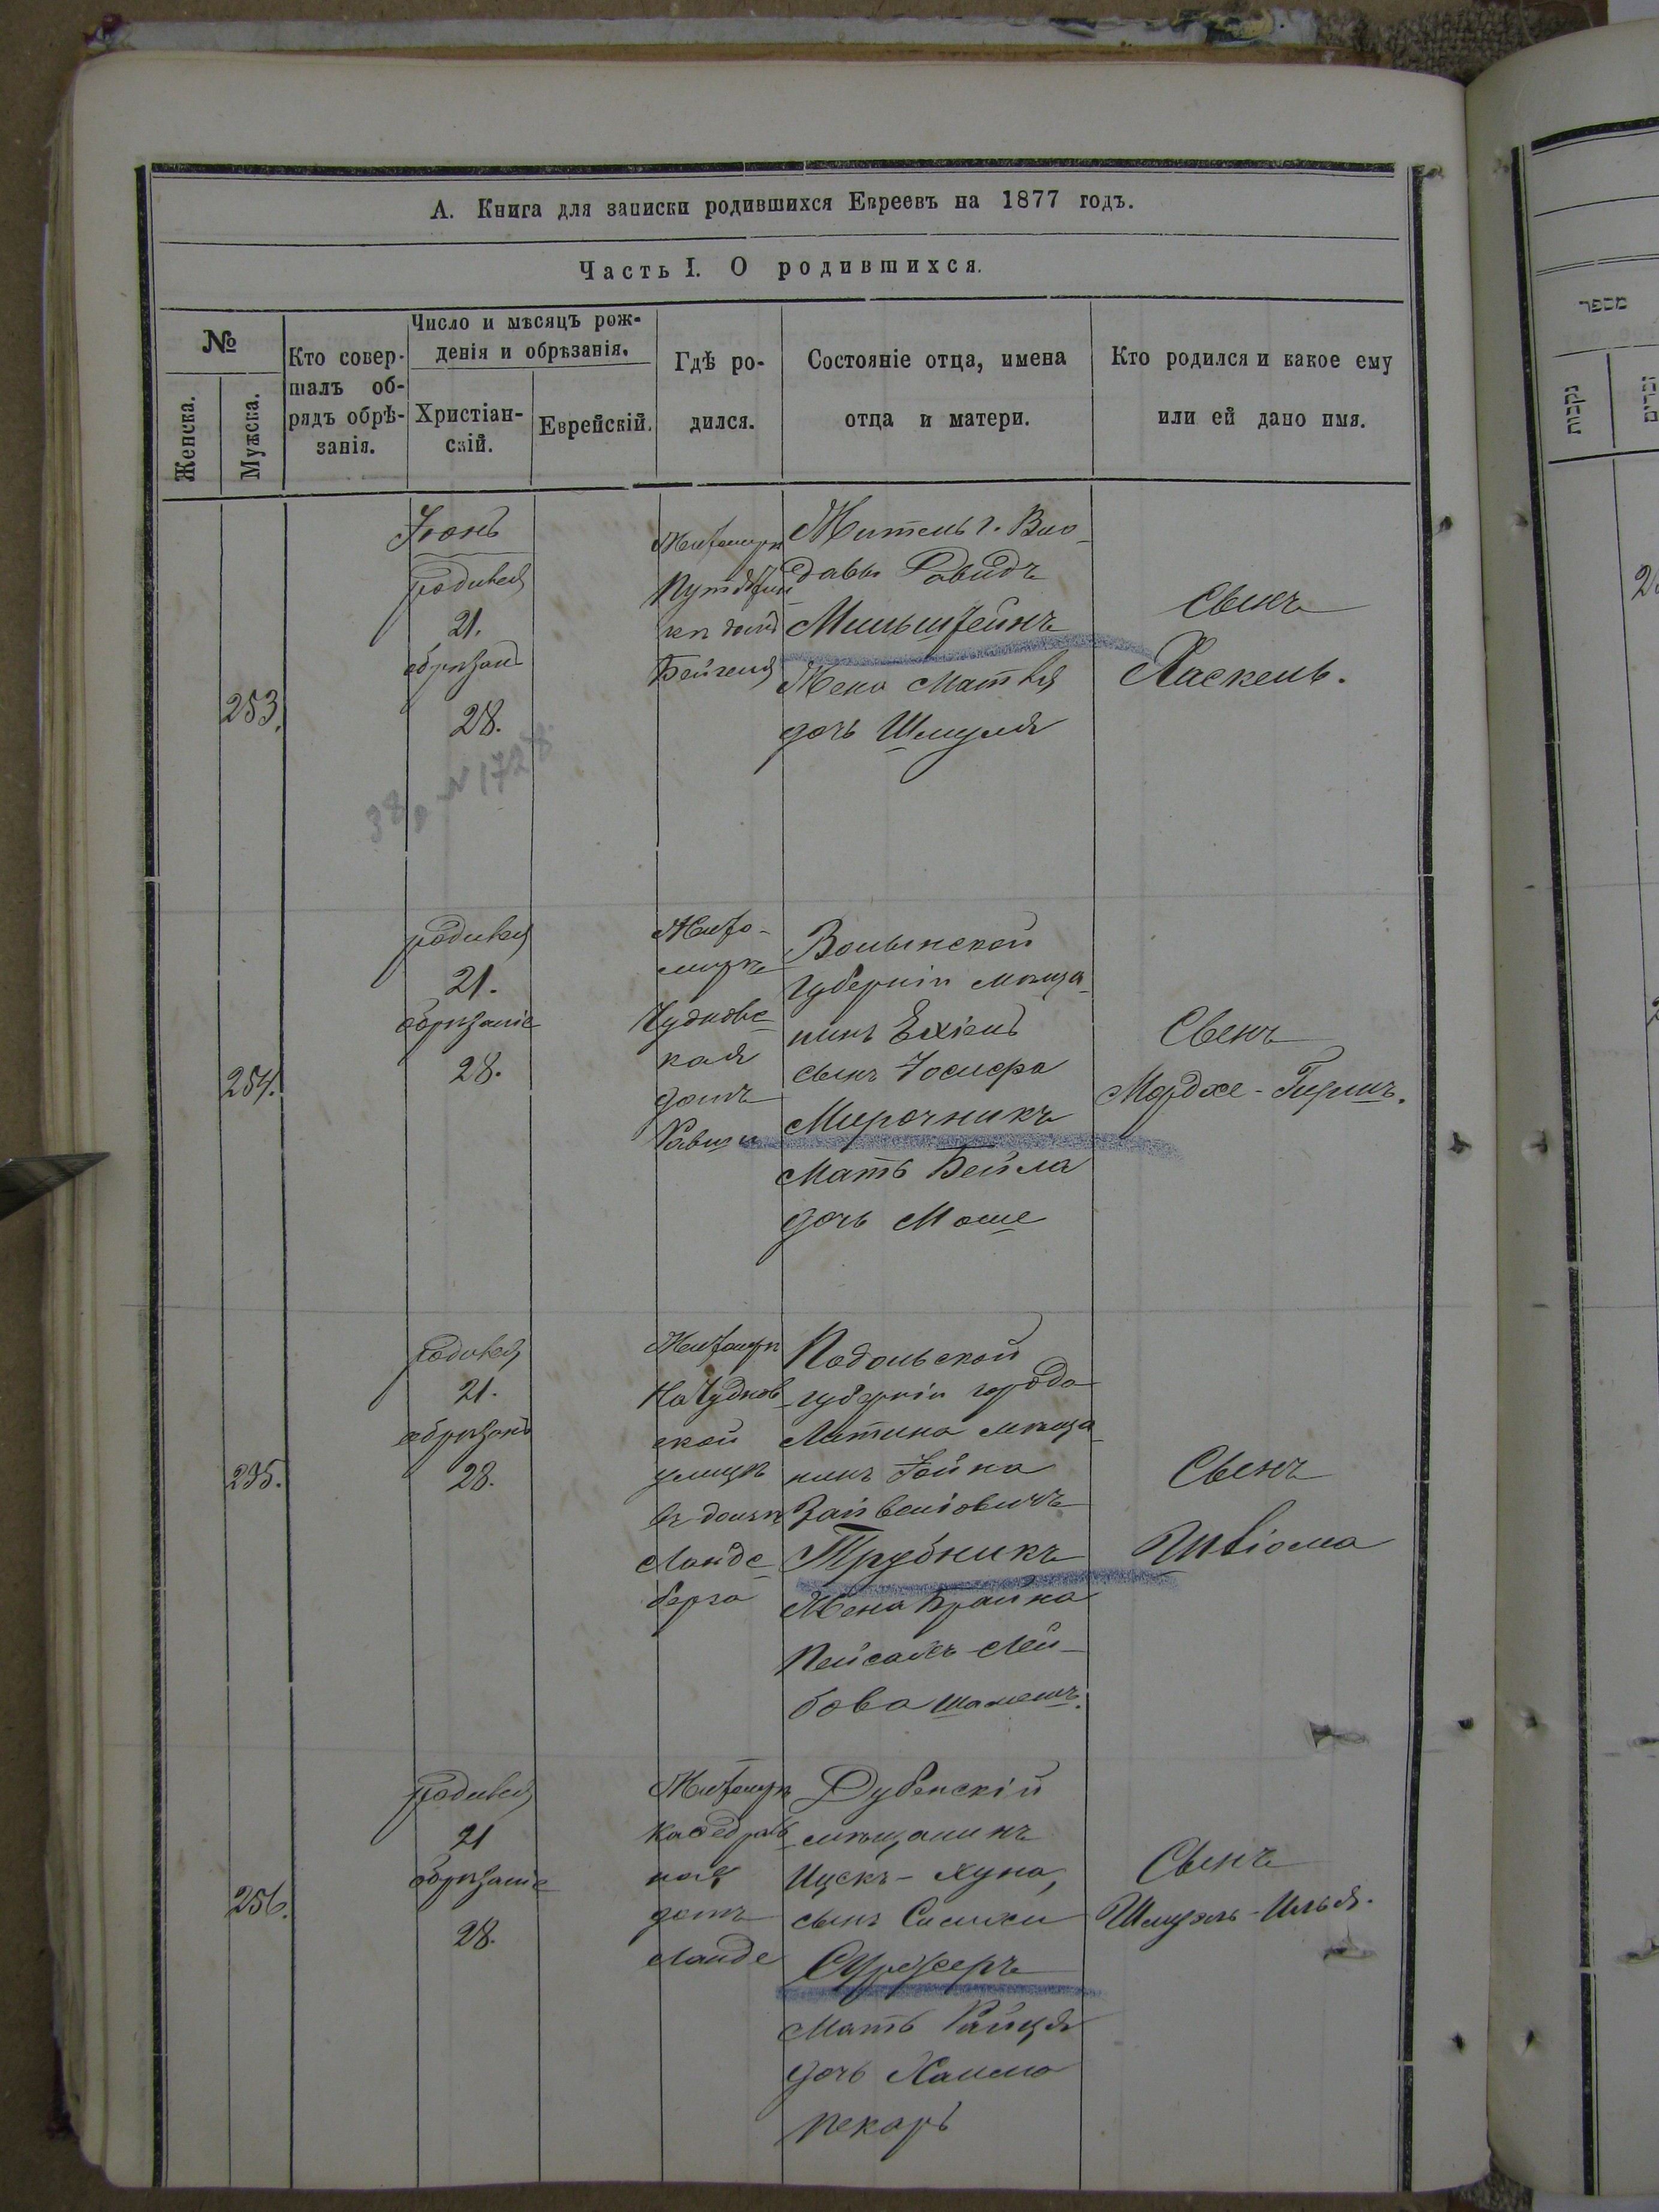 А. Книга для записки родившихся Евреевъ на 1877 годъ.
Часть I. О родившихся.
№
Женска.
Мужска.
Кто совер-
шалъ об-
рядъ обрѣ-
занія.
Число и мѣсяцъ рож-
денія и обрѣзанія.
Христіан-
скій.
Еврейскій.
Гдѣ ро-
дился.
Состояніе отца, имена
отца и матери.
Кто родился и какое ему
или ей дано имя.
253.
Іюнь
родився
21.
обрѣзанъ
28.
38 № 1728
Житомирѣ
домѣ
Житель г. Вло-
давы Давидъ
Мильштейнъ
Жена Матля
дочь Шмуля
Сынъ
Хаскель.
254.
родився
21.
обрѣзаніе
28.
Жито-
мирѣ
Чудновс-
кая
домъ
Волынской
губерніи мѣща-
нинъ Ехіель
сынъ Іосифа
Мирочникъ
Мать Бейла
дочь Моше
Сынъ
Мордхе-Гершъ.
255.
родився
21.
обрѣзанъ
28.
Житомирѣ
На Чуднов-
ской
улицѣ
въ домѣ
Ланде-
берга
Подольской
губерніи города
Латина мѣща-
нинъ Хойна
Зайвеліовичъ
Трубникъ
Жена Брайна
Пейсахъ-Лей-
бова шамешъ.
Сынъ
256.
родився
21
обрѣзаніе
28.
Житомирѣ
Кафедраль-
ная
домъ
Ланде
Дубенскій
мѣщанинъ
Ицекъ-Хуна,
сынъ Симхи
Мать Райця
дочь Хаима
пекарь
Сынъ
Шмуэль-Илья.
מספר
נקבות
זכרים